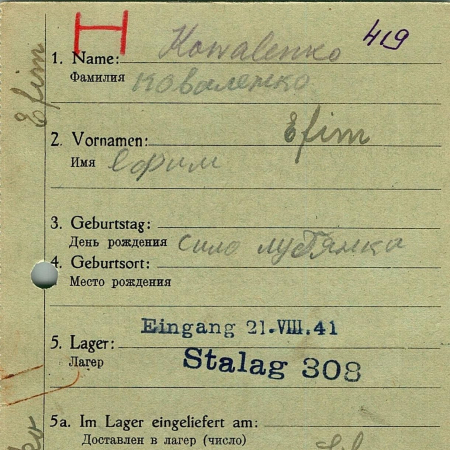 H
419
1. Name: Kowalenko
Фамилия Коваленко
Efim
2. Vornamen: Efim
Имя Ефим
3. Geburtstag:
День рождения Сило Лубянка
4. Geburtsort:
Место рождения
Eingang 21.VIII.41
5. Lager: Stalag 308
Лагер
5a. Im Lager eingeliefert am:
Доставлен в лагер (число)